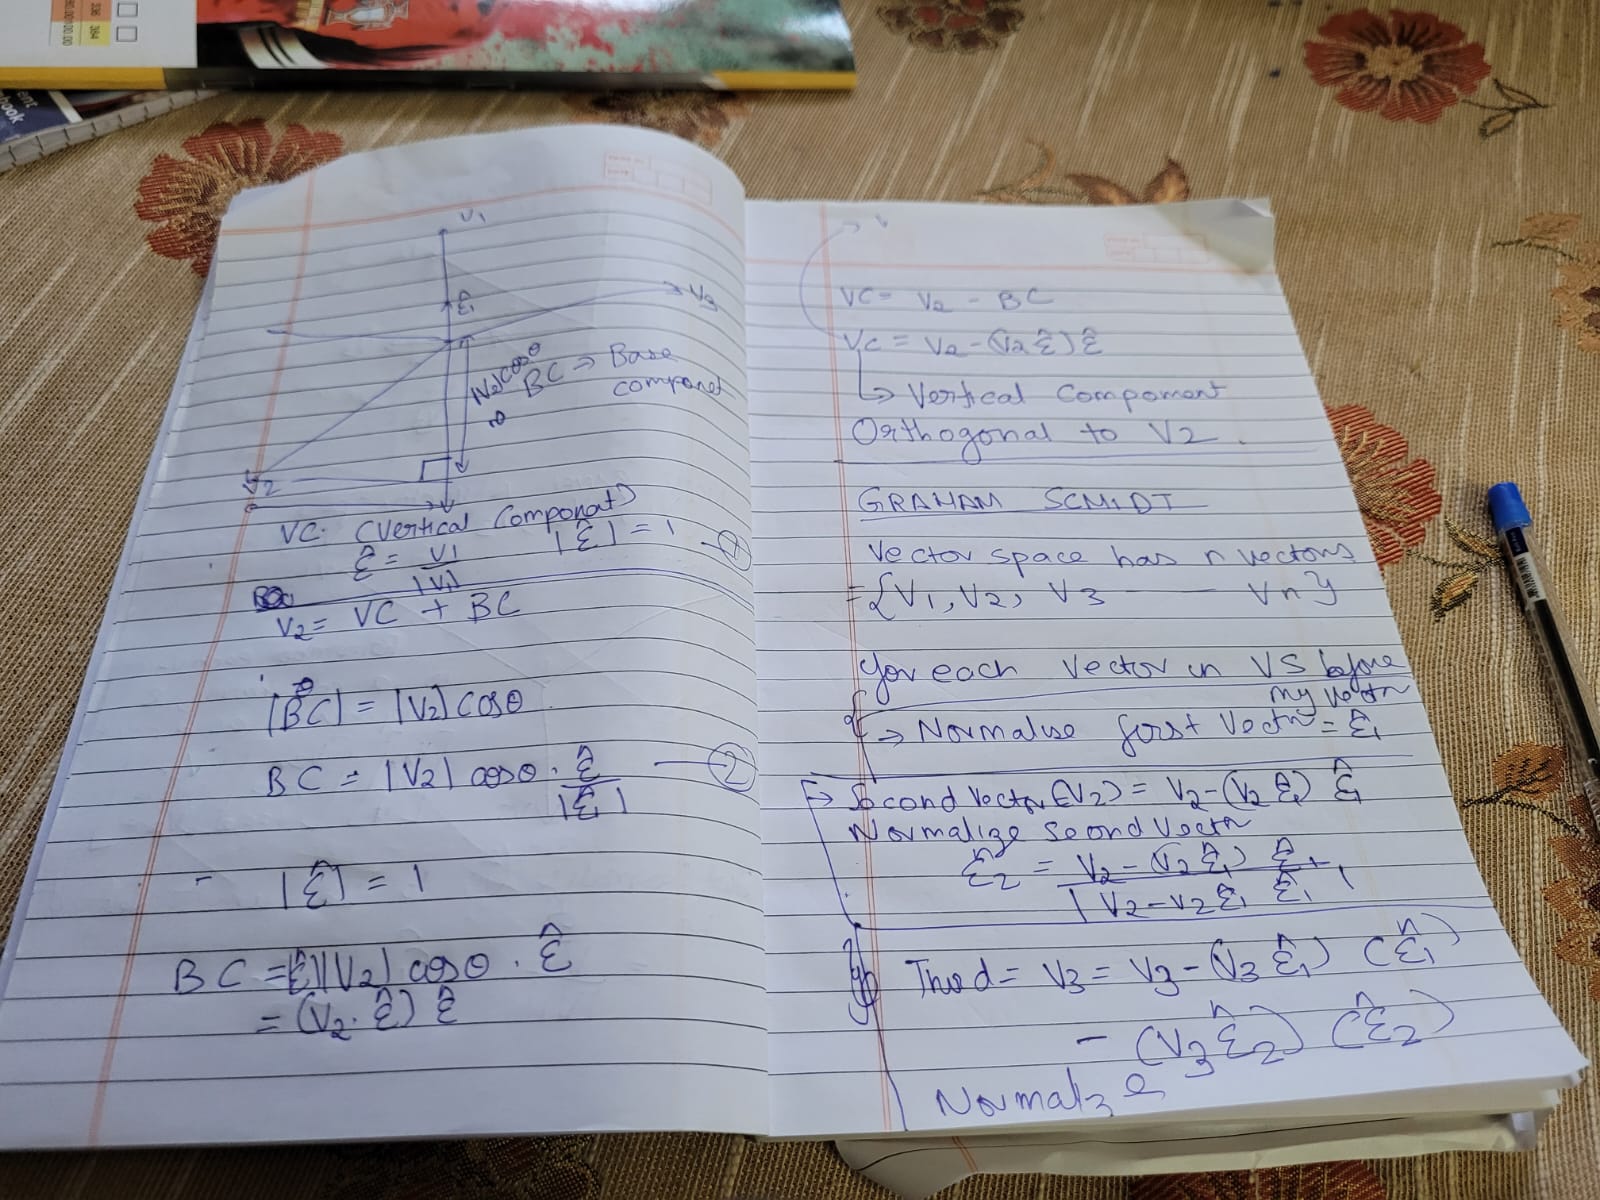 336 384
00.00
ent
book
V1
ε̂1
V3
|V2|cosθ
BC → Base
componet
V2
VC: (Vertical Componat)
ε̂ = V1 / |V1| |ε̂| = 1 — 1
V2 = VC + BC
|BC| = |V2| cosθ
BC = |V2| cosθ . ε̂ / |ε̂| — 2
|ε̂| = 1
BC = |ε̂||V2| cosθ . ε̂
= (V2 . ε̂) ε̂
VC = V2 - BC
VC = V2 - (V2 ε̂) ε̂
↳ Vertical Component
Orthogonal to V2.
GRAHAM SCMIDT
Vector space has n vectors
= {V1, V2, V3 —— Vn}
for each vector in VS before
my vectr
{ → Normalise first Vectr = ε̂1
→ Second Vectr (V2) = V2 - (V2 ε̂1) ε̂1
Normalize second Vectr
ε̂2 = V2 - (V2 ε̂1) ε̂1 / |V2 - V2 ε̂1 ε̂1|
Third = V3 = V3 - (V3 ε̂1) (ε̂1)
- (V3 ε̂2) (ε̂2)
Normalze